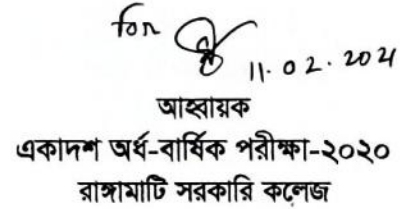 for
11.02.2021
আহ্বায়ক
একাদশ অর্ধ-বার্ষিক পরীক্ষা-২০২০
রাঙ্গামাটি সরকারি কলেজ